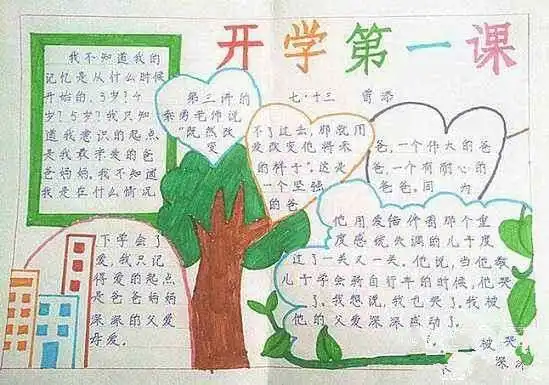 开学第一课
我不知道我的
记忆是从什么时候
开始的，3岁？4
岁？5岁？我只知
道我意识的起点
是我最亲爱的爸
爸妈妈。我不知道
我是在什么情况
下学会了
爱，我只记
得爱的起点
是爸爸妈妈
深深的父爱
母爱。
第三讲的
秦勇老师说
“既然改
变
七·十三
不了过去，那就用
爱改变他将来
的样子”。这是
一个坚强
的爸
爸，一个伟大的爸
爸，一个有耐心的
爸爸。因为
他用爱陪伴着那个重
度感统失调的儿子度
过了一关又一关。他说，当他教
儿子学会骑自行车的时候，他哭
了。我想说，我也哭了。我被
他的父爱深深感动了。